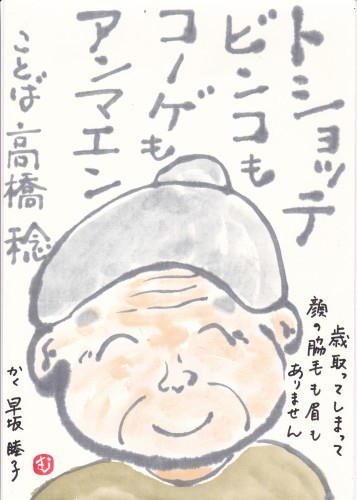 トショッテ
ビンコも
コノゲも
アンマエン
ことば 高橋 稔
歳取ってしまって
顔の脇毛も眉も
ありません
かく 早坂 睦子
む